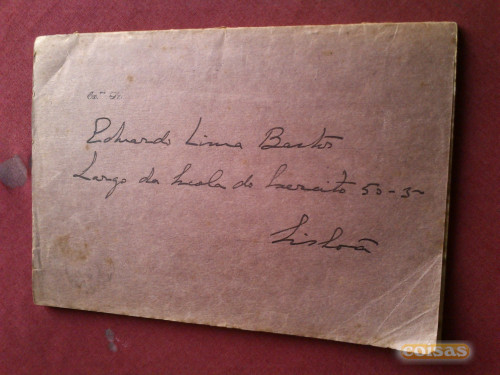 Exmº Sr.
Eduardo Lima Bastos
Largo da Escola do Exercito 50-3º
Lisboa
coisas